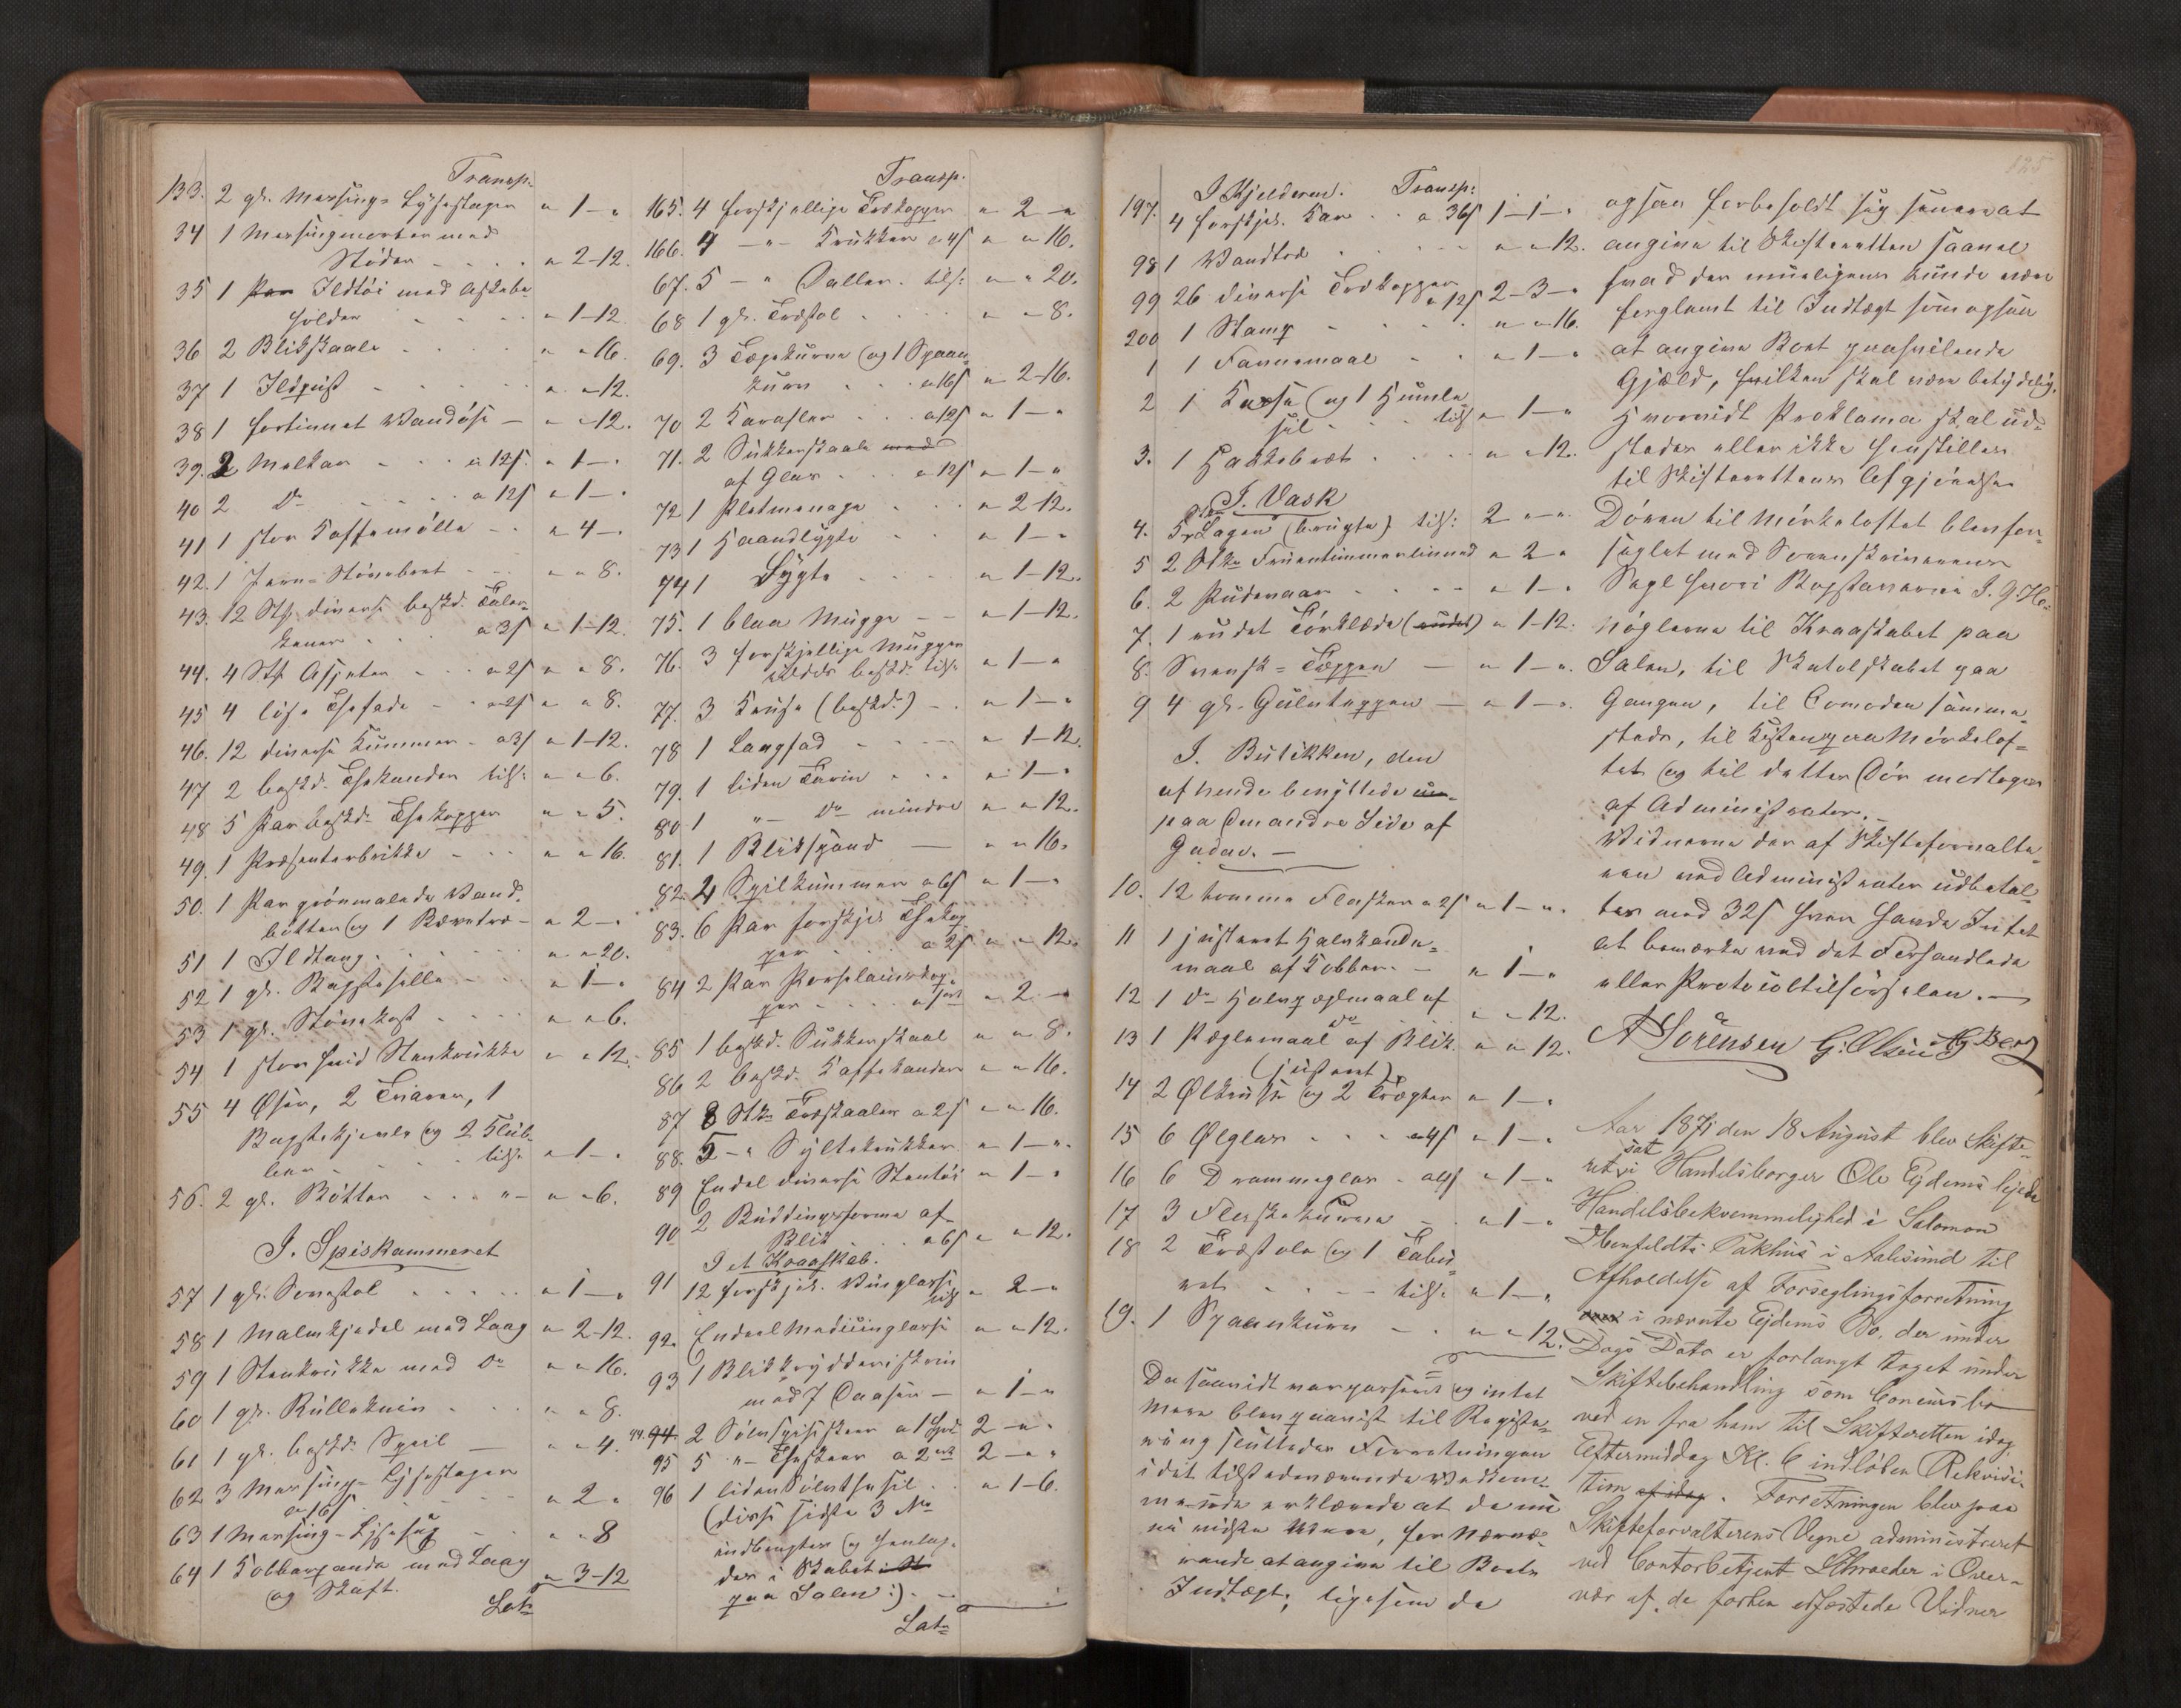 Transp.
133. 2 gl. Messings Lysestager " 1 – "
34 1 Messingmorter med
Støder " 2 – 12.
35 1 Par Ildtøi med Askebe
holder " 1 – 12
36 2 Blikskaale " " 16.
37 1 Ildpust " " 12.
38 1 fortinnet Vandøse – " " 12.
39. 2 Melkar a 12 s. " 1 – "
40 2 Do a 12 s " 1 – "
41 1 stor Kaffemølle " 4 – "
42. 1 Jern-Støvebret " " 8.
43. 12 Stk diverse beskd. Taler-
kener a 3 s " 1 – 12.
44. 4 Stk Asjetter a 2 s " " 8.
45 4 løse Thefade a 2 s " " 8.
46. 12 diverse Kummer a 3 s " 1 – 12.
47 2 beskd. Thekander tils: " " 6.
48 5 Par beskd. Thekopper " " 5.
49. 1 Præsenterbrikke " " 16.
50. 1 Par grønmalede Vand-
bøtter og 1 Bæretræ – " 2 – "
51 1 Ildtang " " 20.
52 1 gl. Bagstehelle " 1 – "
53 1 gl. Støvekost " " 6.
54 1 stor hvid Stenkrukke " " 12.
55 4 Øser, 2 Tvarer, 1
Bagstekjevle og 2 Klub-
ber tils. " 1 – "
56. 2 gl. Bøtter " – " " 6.
I. Spiskammeret
57 1 gl. Sovestol " 1 – "
58 1 Malmkjedel med Laag " 2 – 12.
59 1 Stenkrukke med Do " " 16.
60 1 gl. Kullekniv " " 8.
61 1 gl. beskd. Speil – " " 4.
62 3 Messing-Lysestager
a 16 s " 2 "
63 1 Messing-Lysesax " " 8
64 1 Kobberpande med Laag
og Skaft. " 3 – 12
Lat.
Transp.
165. 4 forskjellige Trækopper " 2 – "
166. 4 – " – Krukker a 4 s " " 16.
67. 5 – " Baller tils: " " 20.
68 1 gl. Træstol " " 8.
69. 3 Tægekurve og 1 Spaan
kurv a 16 s " 2 – 16.
70 2 Karafler a 12 s " 1 – "
71. 2 Sukkerskaale med
af Glas a 12 s " 1 – "
72 1 Platmenage " 2 – 12.
73 1 Haandlygte " 1 – "
74 1 Lygte " 1 – 12.
75. 1 blaa Mugge " 1 – 12.
76. 3 forskjellige Mugger
beskd. tils. " 1 – "
77. 3 Kruse (beskd.) " 1 – "
78 1 Langfad " 1 – 12.
79. 1 liden Terin " 1 – "
80 1 " – Do mindre " " 12.
81. 1 Blikspand – " " 16.
82. 4 Spilkummer a 6 s " 1 – "
83. 6 Par forskjel. Thekop
per a 2 s " " 12.
84 2 Par Porselainskop
per " 2 – "
85 1 beskd. Sukkerskaal " " 8.
86 2 beskd. Kaffekander " " 16.
87 8 Stkr Træskaaler a 2 s " " 16.
88. 5 – " Syltekrukker " 1 – "
89 Endel diverse Stentøi " 1 – "
90 2 Buddingsforme af
Blik a 6 s " " 12.
I et Kraaskab.
91 12 forskjel. Vinglasse
tils " 2 – "
92. Endeel Medicinglasse " " 12.
93 1 Blikkrydderiskrin
med 7 Daaser – " 1 – "
94. 94. 2 Sølvspiseskeer a 1 Spd 2 – "
95 5 " – Theskeer a 2 ort 2 – "
96 1 liden Sølvthesil " 1 – 6.
(disse sidste 3 No
indbringtes og henlag-
des i Skabet
paa Salen:). –
Lat.
125
I Kjelderen. Transp:
197. 4 forskjel. Kar a 36 s 1 – 1 – "
98 1 Vandtrø " " 12.
99 26 diverse Trækopper
a 12 s 2 – 3 – "
200 1 Stamp " " 16.
1 1 Tønnemaal " 1 – "
2 1 Kasse og 1 Humle
sil tils " 1 – "
3. 1 Hakkebræt " " 12.
I. Vask
4. 5 Lagen (brugte) tils: 2 " "
5 2 Stkr Fruentimmerlinned " 2 – "
6. 2 Pudevaar " 1 – "
7. 1 rudet Tørklæde (rudet) " 1 – 12.
8. Svensk-Tæppen – " 1 – "
9 4 gl. Gulvtæpper – " 1 – "
I. Butikken, den
af hende benyttede
paa den andre Side af
Gaden. –
10. 12 tomme Flasker a 2 s " 1 – "
11 1 justeret Halvkande-
maal af Kobber. – " 1 – "
12 1 Do Halvpæglmaal af
Do " " 12.
13 1 Pæglemaal af Blik " " 12.
(justeret)
14 2 Ølkruse og 2 Trægter " 1 – "
15 6 Ølglas a 4 s " 1 – "
16 6 Dramme glas a 4 s " 1 – "
17 3 Fleskekurve " 1 – "
18 2 Træstole og 1 Tabu
ret tils. " 1 – "
19. 1 Spaankurv " " 12.
Da saavidt var passeret og intet
mere blev paavist til Registe-
ring sluttedes Forretningen
i det tilstedeværende Vedkom-
mende erklærede at de nu
ei vidste mere, for nærvæ-
rende at angive til Boets
Indtægt, ligesom de
ogsaa forbeholdt sig senere at
angive til Skifteretten saavel
hvad der muligens kunde være
forglemt til Indtægt som ogsaa
at angive Boet paahvilende
Gjæld, hvilken skal være betydelig.
Hvorvidt Proklama skal ud-
stedes eller ikke henstilles
til Skifterettens Afgjørelse.
Døren til Mørkeloftet blev for-
seglet med Sorenskriverens
Segl hvori Bogstaverne I. G. He-
nøglerne til Kraaskabet paa
Salen, til Skatolskabet paa
Gangen, til Comoden samme-
steds, til Kisten paa Mørkelof-
tet og til dettes Dør modtoges
af Administrator. –
Vidnerne der af Skifteforvalte-
ren ved Administrator udbetal-
tes med 32 s hver havde Intet
at bemærke ved det Forhandlede
eller Protocoltilførselen. –
A Sørensen G. Olsen Berg
Aar 1871 den 18 August blev Skifte-
ret sat i Handelsborger Ole Ejdems leiede
Handelsbekvemmelighed i Salomon
Ibenfeldts Pakhus i Aalesund til
Afholdelse af Forseglingsforretning
i nævnte Ejdems Bo, der under
Dags Dato er forlangt taget under
Skiftebehandling som Concursbo
ved en fra ham til Skifteretten idag
Eftermiddag Kl. 6 indløben Rekvisi-
tion af idag. Forretningen blev paa
Skifteforvalterens Vegne administreret
ved Contorbetjent Schroeder i Over-
vær af de forhen edfæstede Vidner